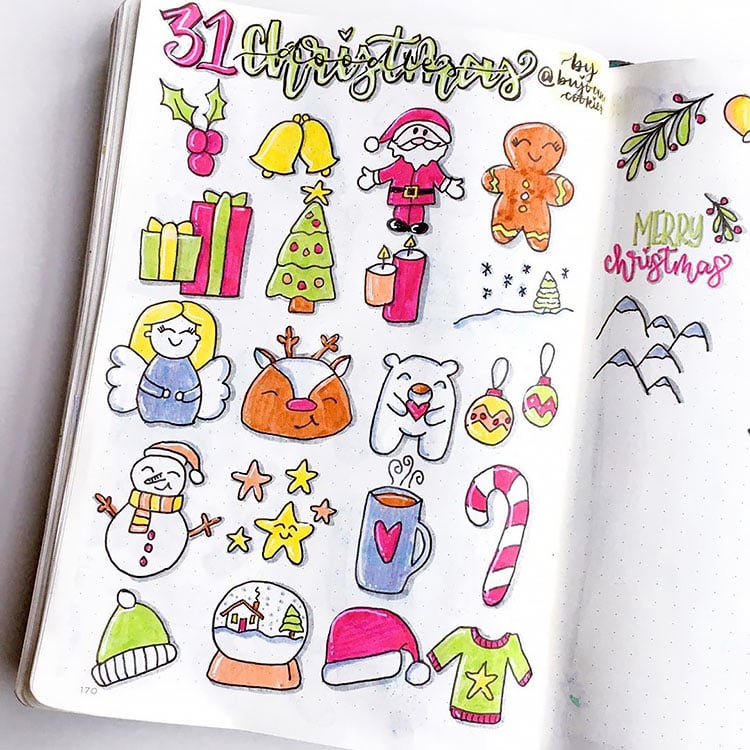 31 christmas
doodles
by
cookies
MERRY
christmas
170